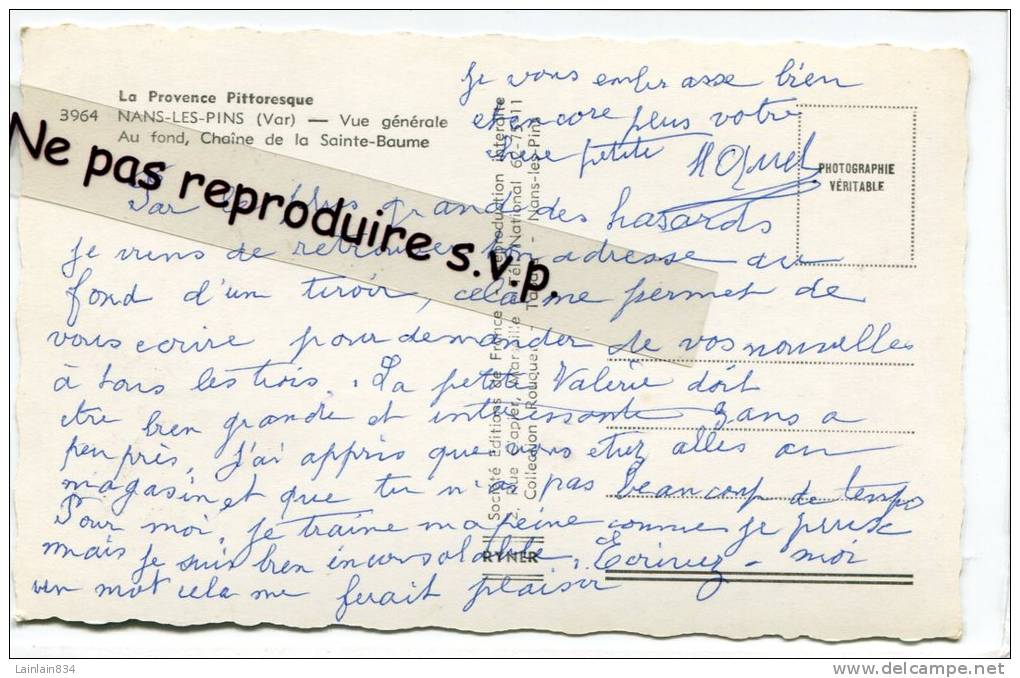 La Provence Pittoresque
3964 NANS-LES-PINS (Var) — Vue générale
Au fond, Chaîne de la Sainte-Baume
PHOTOGRAPHIE
VÉRITABLE
Ne pas reproduire s.v.p.
Par le plus grand des hasards
je viens de retrouver ton adresse au
fond d'un tiroir, cela me permet de
vous ecrire pour demander de vos nouvelles
à tous les trois. La petite Valerie doit
etre bien grande et interessante 3 ans a
peu près. J'ai appris que vous etiez alles au
magasin et que tu n'a pas beaucoup de temps
Pour moi, je traine ma peine comme je puis
mais je suis bien inconsolable. Ecrivez-moi
un mot cela me ferait plaisir
Je vous embrasse bien
encore plus votre
chere petite
Société Editions de France - Reproduction interdite
2, Rue Papier, Marseille Tél. National 60-75/11
Collection Rouquet - Tabac - Nans-les-Pins
RYNER
Lainlain834
delcampe.net